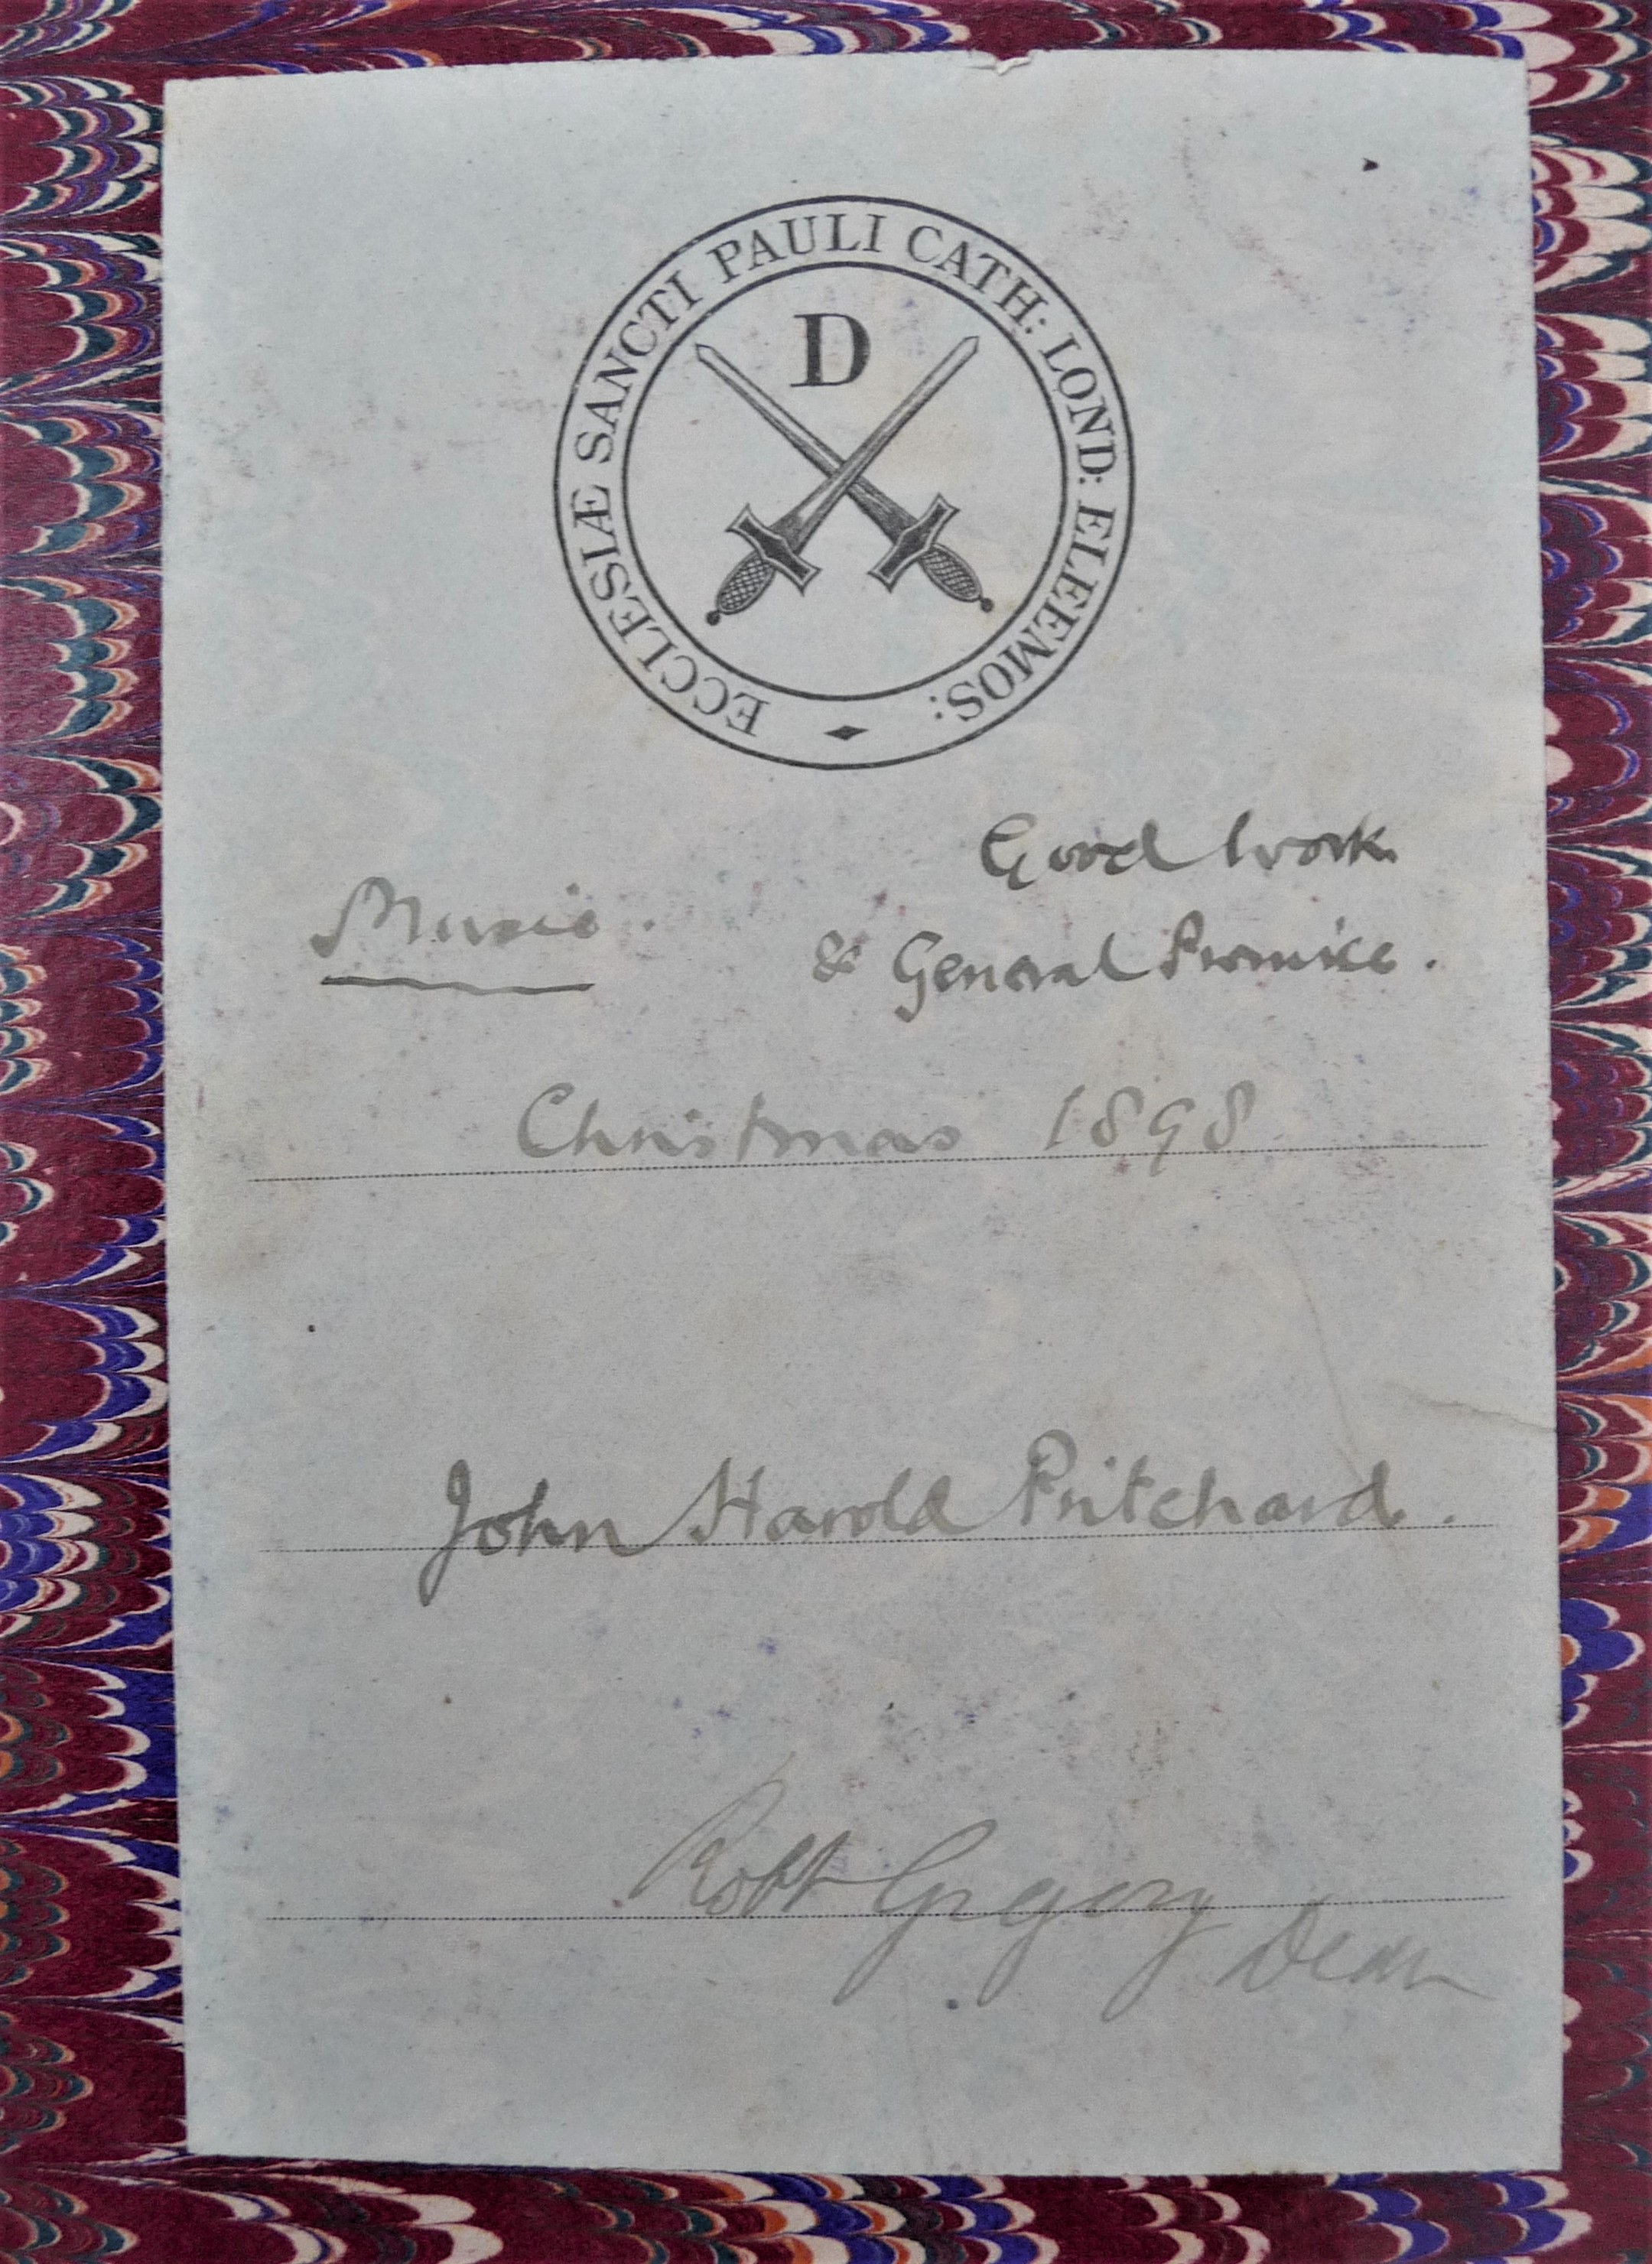 ECCLESIÆ SANCTI PAULI CATH: LOND: ELEEMOS:
D
Good Work
Music.
& General Promise.
Christmas 1898
John Harold Pritchard.
Robt Gregory
Dean